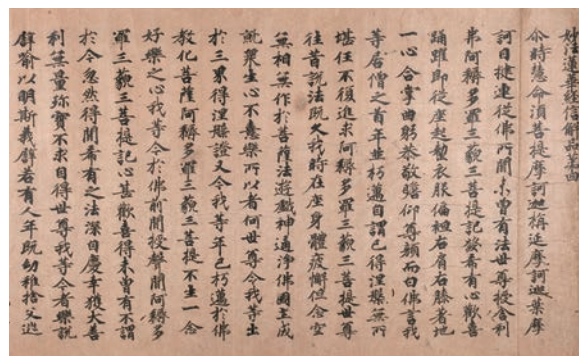 妙法蓮華經信解品第四
尒時慧命須菩提摩訶迦旃延摩訶迦葉摩
訶目揵連從佛所聞未曾有法世尊授舍利
弗阿耨多羅三藐三菩提記發希有心歡喜
踊躍即從座起整衣服偏袒右肩右膝著地
一心合掌曲躬恭敬瞻仰尊顏而白佛言我
等居僧之首年並朽邁自謂已得涅槃無所
堪任不復進求阿耨多羅三藐三菩提世尊
往昔說法既久我時在座身體疲懈但念空
無相無作於菩薩法遊戲神通淨佛國土成
就衆生心不喜樂所以者何世尊令我等出
於三界得涅槃證又今我等年已朽邁於佛
教化菩薩阿耨多羅三藐三菩提不生一念
好樂之心我等今於佛前聞授聲聞阿耨多
羅三藐三菩提記心甚歡喜得未曾有不謂
於今忽然得聞希有之法深自慶幸獲大善
利無量珍寶不求自得世尊我等今者樂說
譬喻以明斯義譬若有人年既幼稚捨父逃